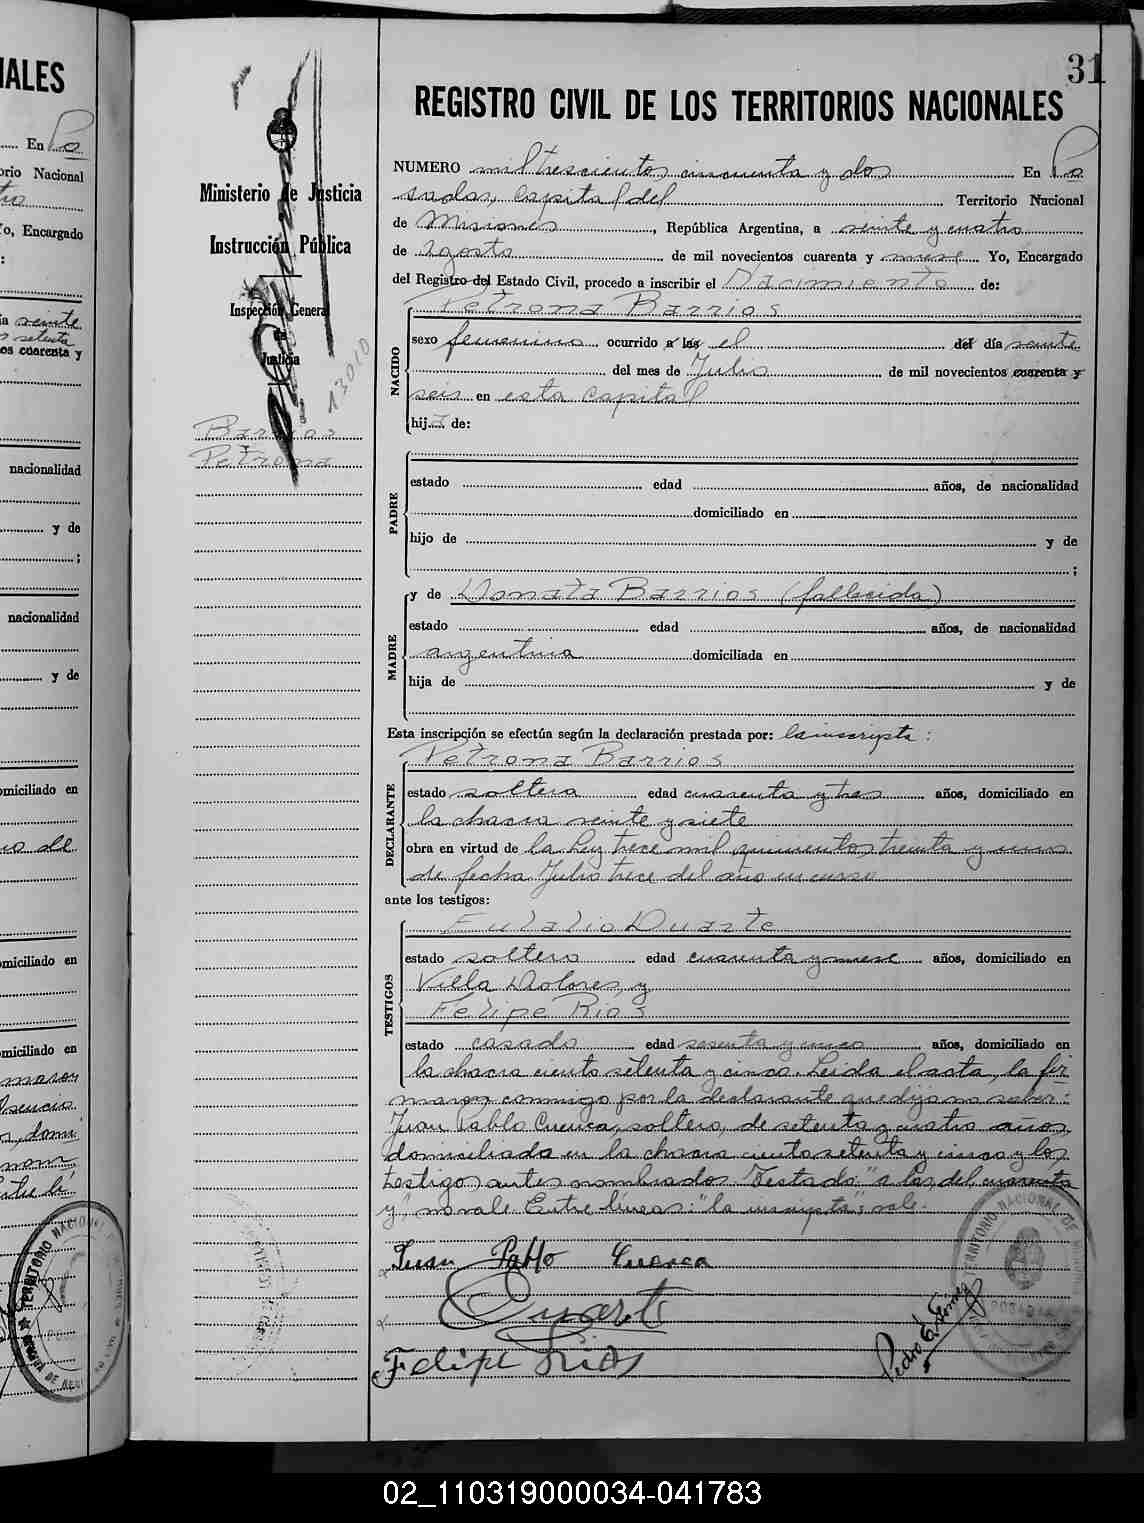 31
REGISTRO CIVIL DE LOS TERRITORIOS NACIONALES
NUMERO mil trescientos cincuenta y dos En Po
sadas, capital del Territorio Nacional
de Misiones, República Argentina, a veinte y cuatro
de Agosto de mil novecientos cuarenta y nueve Yo, Encargado
del Registro del Estado Civil, procedo a inscribir el Nacimiento de:
NACIDO
Petrona Barrios
sexo femenino ocurrido a las el del día veinte
del mes de Julio de mil novecientos cuarenta y
seis en esta capital
hija de:
PADRE
estado edad años, de nacionalidad
domiciliado en
hijo de y de
;
MADRE
y de Donata Barrios (fallecida)
estado edad años, de nacionalidad
argentina domiciliada en
hija de y de
Esta inscripción se efectúa según la declaración prestada por: la inscripta:
DECLARANTE
Petrona Barrios
estado soltera edad cuarenta y tres años, domiciliado en
la chacra veinte y siete
obra en virtud de la Ley trece mil quinientos treinta y uno
de fecha Julio trece del año en curso
ante los testigos:
TESTIGOS
Eulalio Duarte
estado soltero edad cuarenta y nueve años, domiciliado en
Villa Dolores, y
Felipe Rios
estado casado edad sesenta y cinco años, domiciliado en
la chacra ciento setenta y cinco. Leida el acta, la fir
maron conmigo por la declarante que dijo no saber:
Juan Pablo Cuenca, soltero, de setenta y cuatro años,
domiciliado en la chacra ciento setenta y cinco y los
testigos antes nombrados. Testado: "a las, del, cuarenta
y", no vale. Entre líneas: "la inscripta": vale.
Juan Pablo Cuenca
Duarte
Felipe Rios
Pedro E.
Ministerio de Justicia
e
Instrucción Pública
Inspección General
de
Justicia
13010
Barrios
Petrona
IALES
En Po
orio Nacional
o, Encargado
:
ia veinte
setenta
os cuarenta y
nacionalidad
y de
;
nacionalidad
y de
omiciliado en
de
omiciliado en
omiciliado en
TERRITORIO NACIONAL DE
02_110319000034-041783